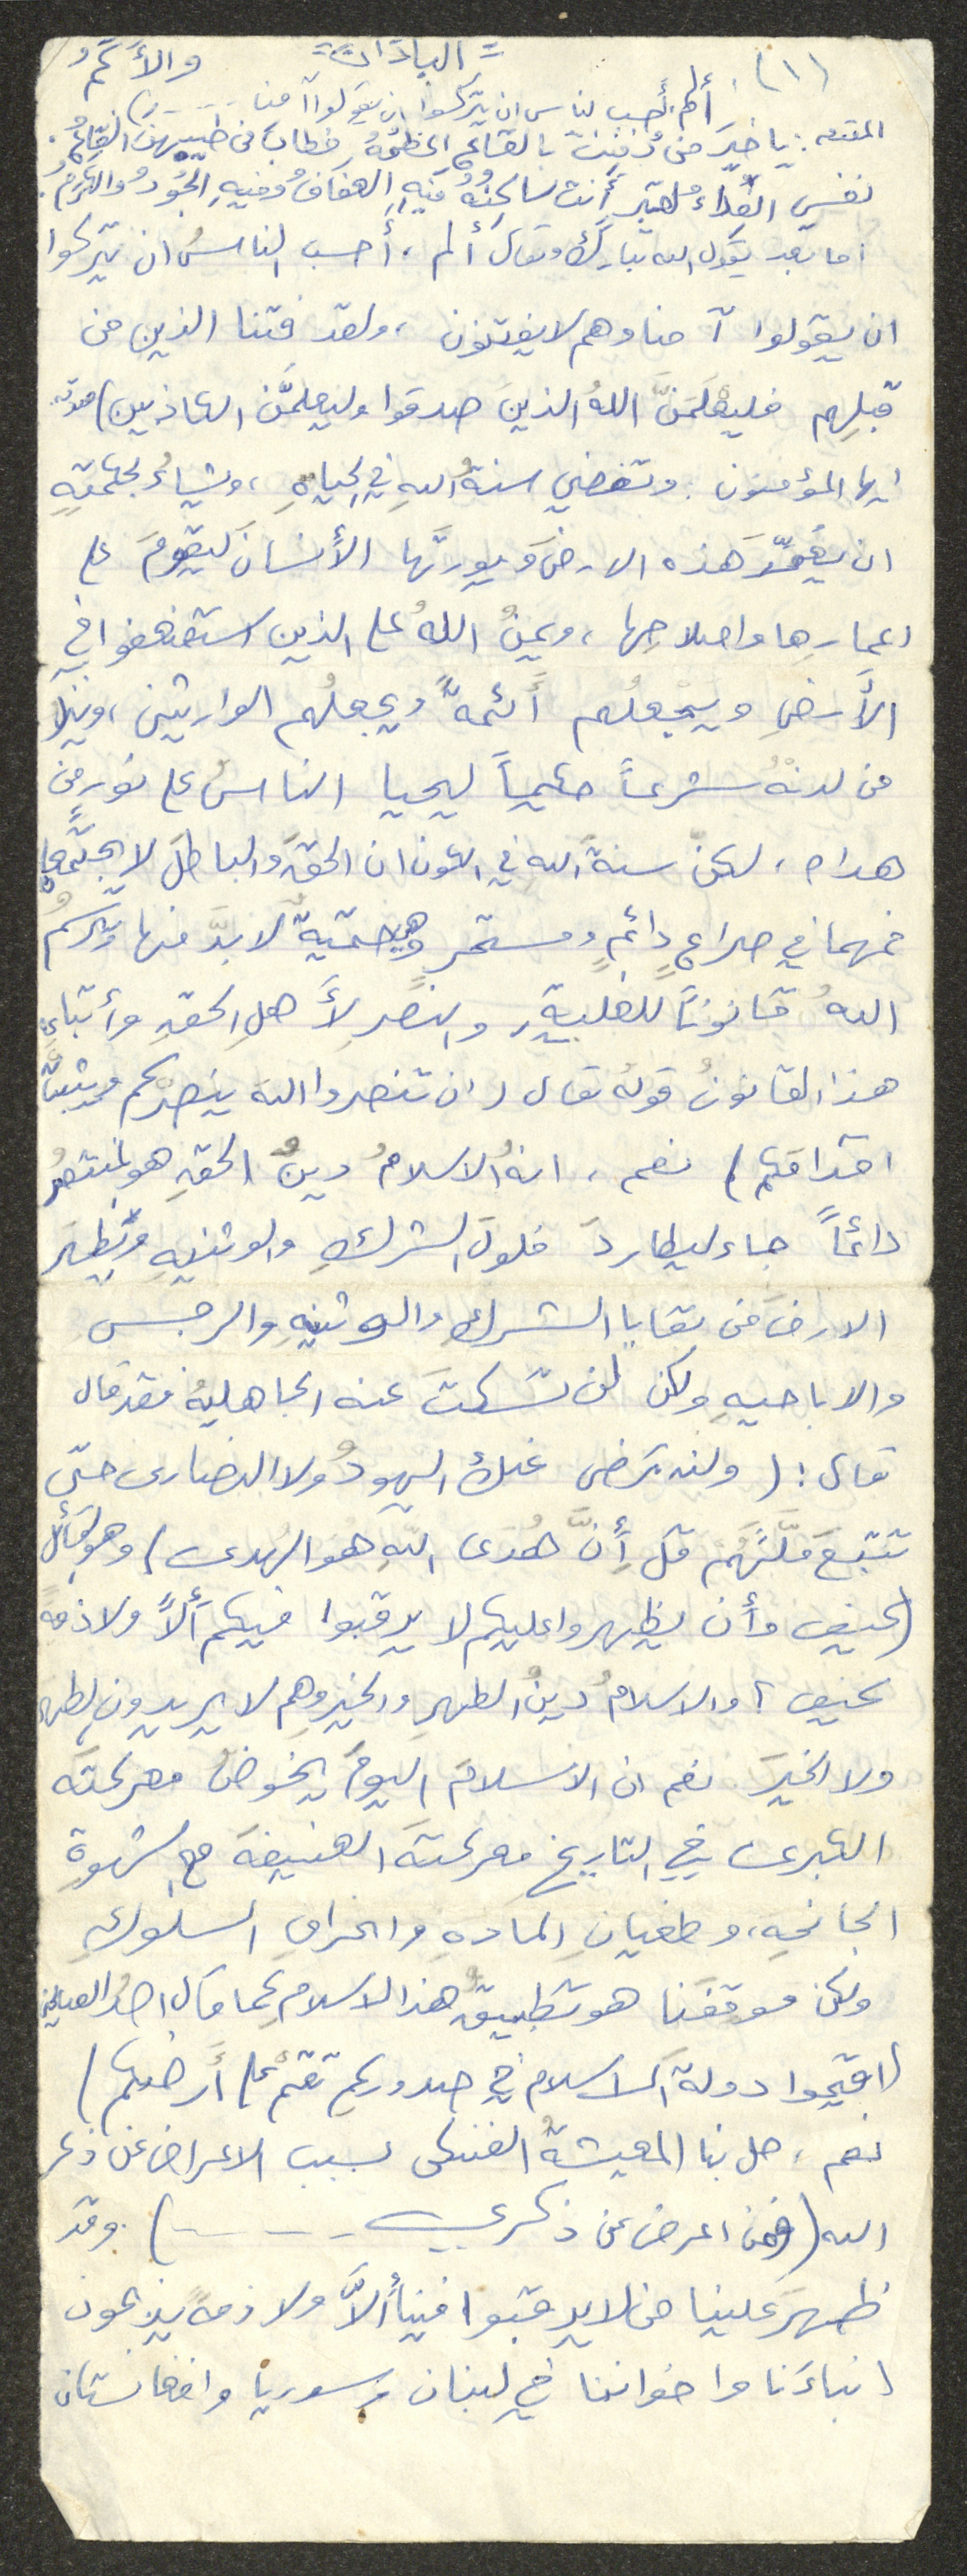 (١) = الباذان = والأكَمُ
ألم أحسب الناس ان يتركوا ان يقولوا آمنا -----)
المقدمه : يا خيرَ من دُفِنَتْ بالقاعِ اعظمُهُ فطابَ من طيبهنَّ القاعُ
نفسي الفداءُ لقبرٍ أنت ساكنُهُ فيهِ العفافُ وفيهِ الجُودُ والكرَمُ .
اما بعد يقول الله تبارك وتعالى ألم ، أحسب الناسُ ان يتركوا
ان يقولوا آمنا وهم لا يفتنون ، ولقد فتنا الذين من
قبلِهم فليعْلَمَنَّ اللهُ الذينَ صدقوا وليعلمَّن الكاذبين)
ايها المؤمنون : وتمضي سنةُ اللهِ في الحياةِ ، ويشاءُ بحكمتِهِ
ان يعمِّرَ هذه الارضَ ويورثَها الأنسانَ ليقومَ على
اعمارِها واصلاحِها ، ويمنُ اللهُ على الذين استضعفوا في
الأرضِ ويجعلُهم أئمةً ويجعلُهم الوارثين ، وينزل
من لدنْهُ شرعاً حكيماً ليحيا الناسُ على نورٍ من
هداه ، لكن سنةَ الله في الكون ان الحقَ والباطلَ لا يجتمعا
فهما في صراعٍ دائمٍ ومستمرٍ وهي حتميةٌ لابدَّ منها ويرسمُ
اللهُ قانوناً للغلبةِ والنصرِ لأهلِ الحقِ وأتباعِ
هذا القانونُ قولهُ تعالى (ان تنصروا الله ينصرْكم ويثبتْ
اقدامكم) نعم ، انهُ الاسلامُ دينُ الحقِ هو المنتصرُ
دائماً جاء ليطاردَ فلولَ الشركِ والوثنيهِ ويُطهرَ
الارضَ من بقايا الشركِ والوثنيهِ والرجسِ
والاباحيهِ ولكن لن تسكتَ عنه الجاهليهُ فقد قال
تعالى : (ولن ترضى عنك اليهودُ ولا النصارى حتى
تتبعَ ملَّتَهُم قل أنَّ هُدَى اللهِ هو الهدى) وهو القائل
(كيف وأن يظهروا عليكم لا يرقبوا فيكم ألاً ولا ذمةً
كيف ؟ والاسلامُ دينُ الطهرِ والخيرِ وهم لا يريدون الطهر
ولا الخيرَ نعم ان الاسلامَ اليومَ يخوضُ معركتَه
الكبرى في التاريخ معركتَه العنيفةَ مع الشهوةِ
الجانحهِ ، وطغيانِ المادهِ وانحرافِ السلوكِ
ولكن موقفنا هو تطبيقُ هذا الاسلام كما قال احدُ
(اقيموا دولةَ الاسلام في صدوركم تقمْ على أرضكم)
نعم ، حل بنا المعيشةُ الضنكى بسبب الاعراض عن ذكر
الله (فمن اعرض عن ذكري -----) . وقد
ظهرَ علينا من لا يرقبوا فينا ألاَّ ولا ذمةً يذبحون
ابناءَنا واخواننا في لبنان وسوريا وافغانستان